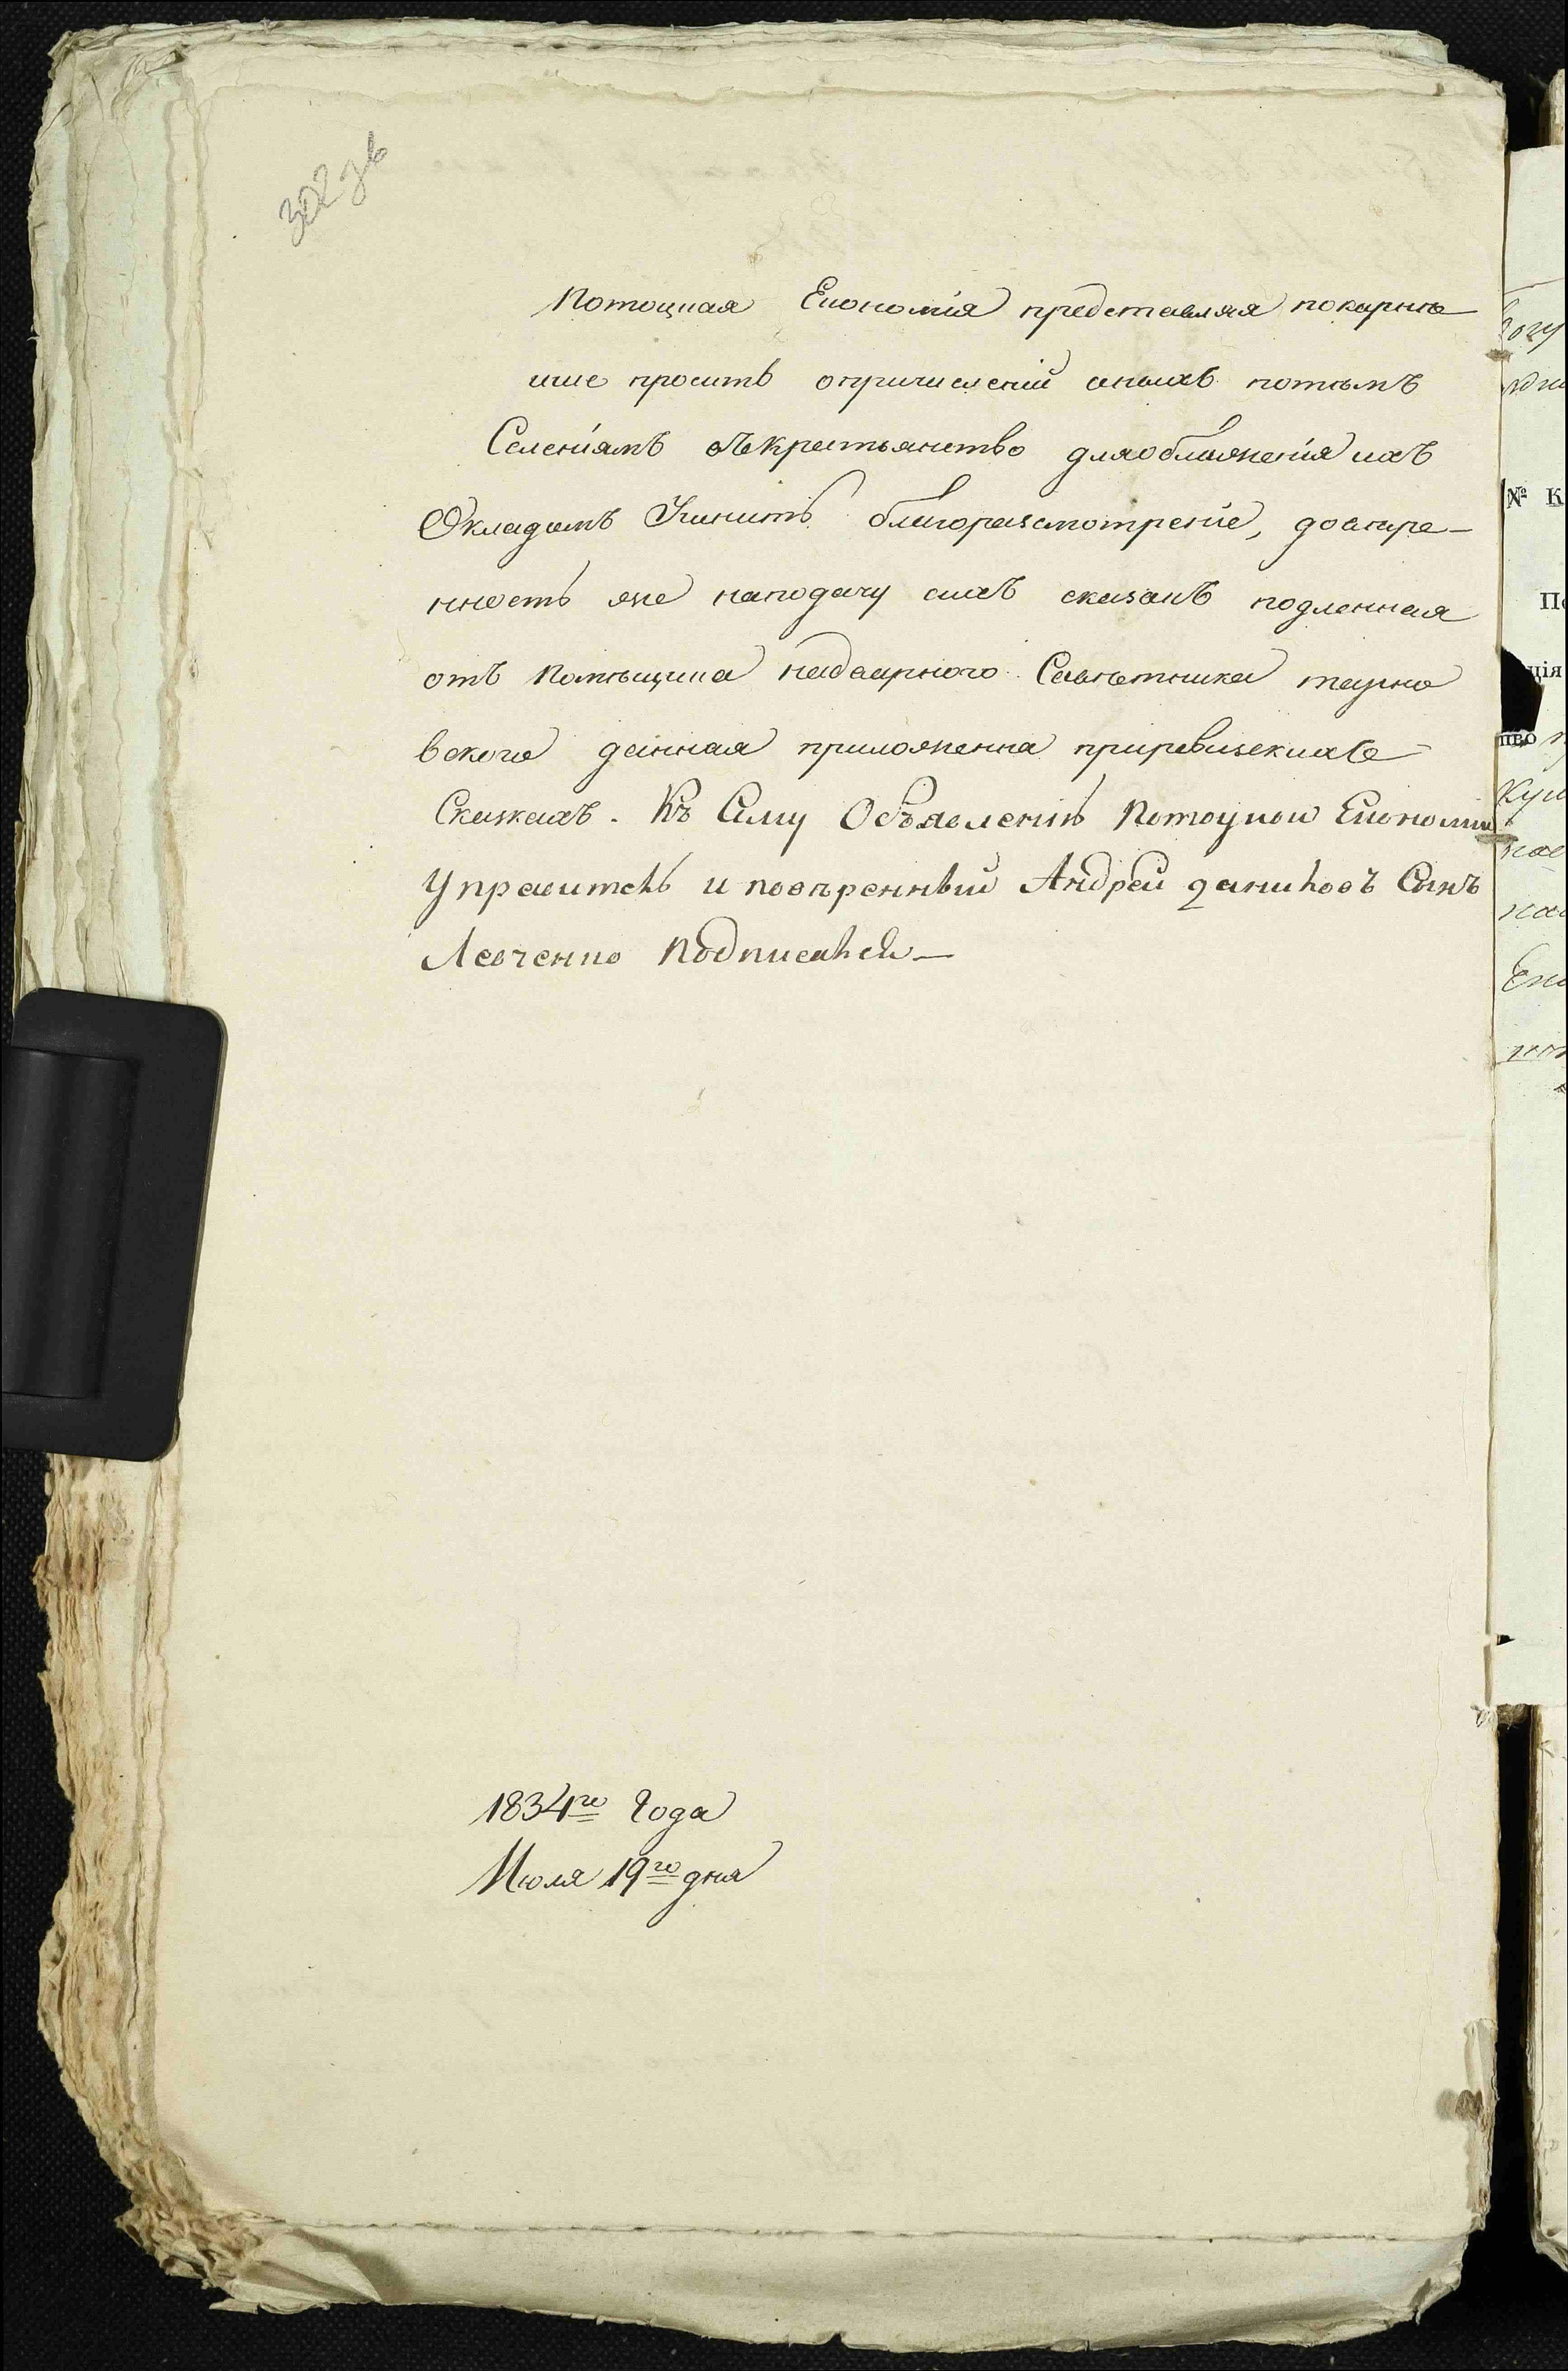 302 зв
Потоцкая Економія представляя покарнѣ
ише проситъ опричисленіи оныхъ потѣмъ
Селеніямъ въкрестьянство дляобложенія ихъ
Окладомъ Учинить благоразсмотреніе, довѣре-
нность же наподачу сихъ сказакъ подленная
отъ Помѣщика надворного Савѣтника тарно
вского данная приложенна приревизскихъ
Сказкахъ. Къ Сему Объявленію Потоцкой Економии
Управитель и повѣренный Андрей даниловъ Сынъ
Левченко Подписался
1834го Года
Июля 19го дня
№ К